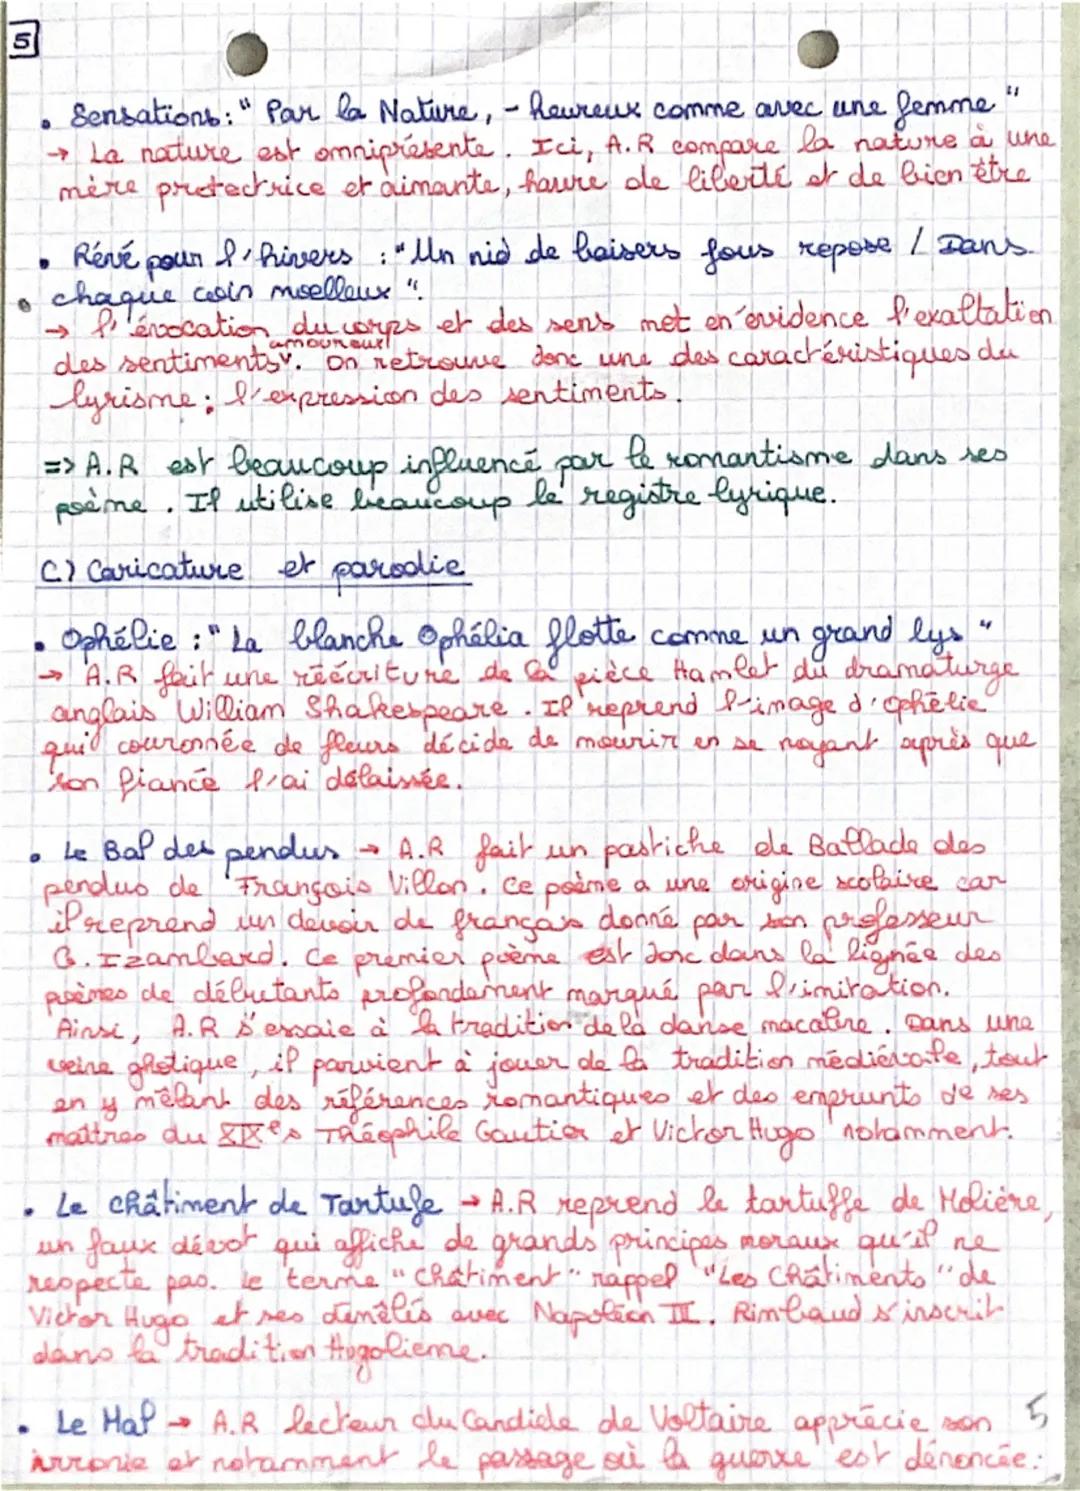 5
• Sensations : " Par la Nature, - heureux comme avec une femme "
→ La nature est omniprésente. Ici, A.R compare la nature à une
mère protectrice et aimante, havre de liberté et de bien être
• Révé pour l'hivers : " Un nid de baisers fous repose / Dans
chaque coin moelleux ".
→ l'évocation du corps et des sens met en évidence l'exaltation
amoureux
des sentiments v. On retrouve donc une des caractéristiques du
lyrisme ; l'expression des sentiments.
=> A.R est beaucoup influencé par le romantisme dans ses
poème. Il utilise beaucoup le registre lyrique.
C) Caricature et parodie
• Ophélie : " La blanche Ophélia flotte comme un grand lys "
→ A.R fait une réécriture de la pièce Hamlet du dramaturge
anglais William Shakespeare. Il reprend l'image d'Ophélie
qui couronnée de fleurs décide de mourir en se noyant après que
son fiancé l'ai délaissée.
• Le Bal des pendus → A.R fait un pastiche de Ballade des
pendus de François Villon. Ce poème a une origine scolaire car
il reprend un devoir de français donné par son professeur
G. Izambard. Ce premier poème est donc dans la lignée des
poèmes de débutants profondement marqué par l'imitation.
Ainsi, A.R s'essaie à la tradition de la danse macabre. Dans une
veine ghotique, il parvient à jouer de la tradition médiévale, tout
en y mêlant des références romantiques et des emprunts de ses
maîtres du XIXe s Théophile Gautier et Victor Hugo notamment.
• Le châtiment de Tartufe → A.R reprend le tartuffe de Molière,
un faux dévot qui affiche de grands principes moraux qu'il ne
respecte pas. Le terme " châtiment " rappel " Les Châtiments " de
Victor Hugo et ses démêlés avec Napoléon III. Rimbaud s'inscrit
dans la tradition Hugolienne.
• Le Mal → A.R lecteur du Candide de Voltaire apprécie son
irronie et notamment le passage où la guerre est dénoncée :
5